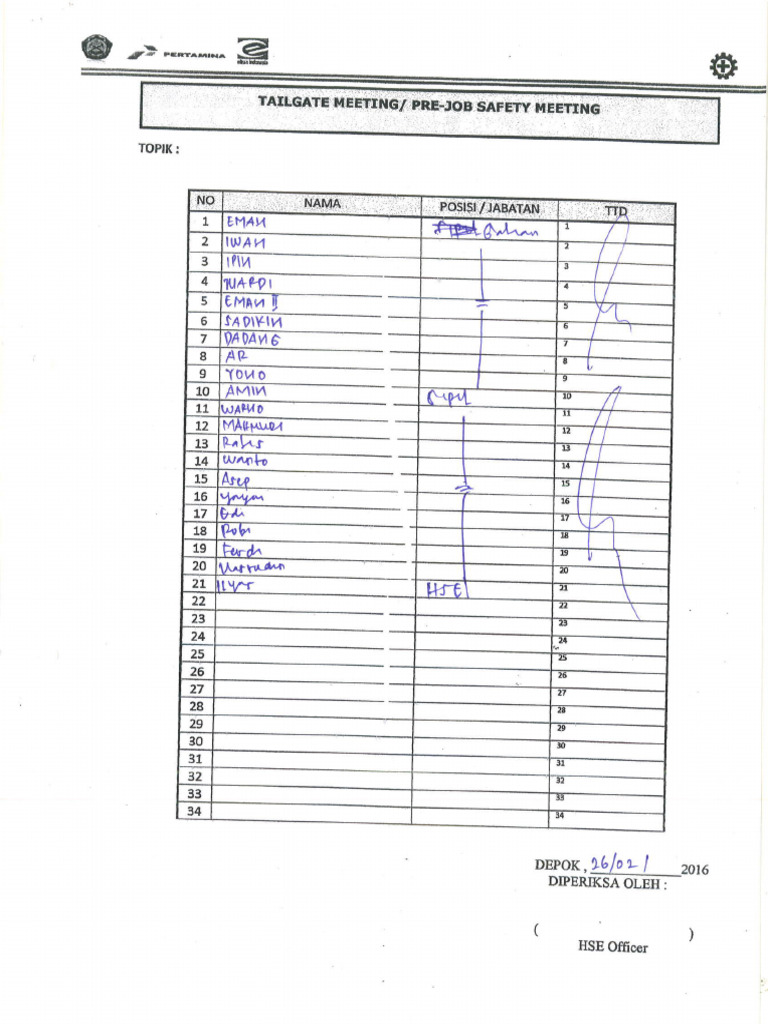 PERTAMINA
TAILGATE MEETING/ PRE-JOB SAFETY MEETING
TOPIK :
NO NAMA POSISI / JABATAN TTD
1 EMAN 1
2 IWAN 2
3 IPIN 3
4 WARDI 4
5 EMAN II 5
6 SADIKIN 6
7 DADANG 7
8 AR 8
9 YONO 9
10 AMIN Sipil 10
11 WARNO 11
12 MAKMURI 12
13 13
14 Wanto 14
15 Asep 15
16 Yayan 16
17 Edi 17
18 Robi 18
19 Ferdi 19
20 20
21 Ilyas HSE 21
22 22
23 23
24 24
25 25
26 26
27 27
28 28
29 29
30 30
31 31
32 32
33 33
34 34
DEPOK , 26/02/ 2016
DIPERIKSA OLEH :
( )
HSE Officer